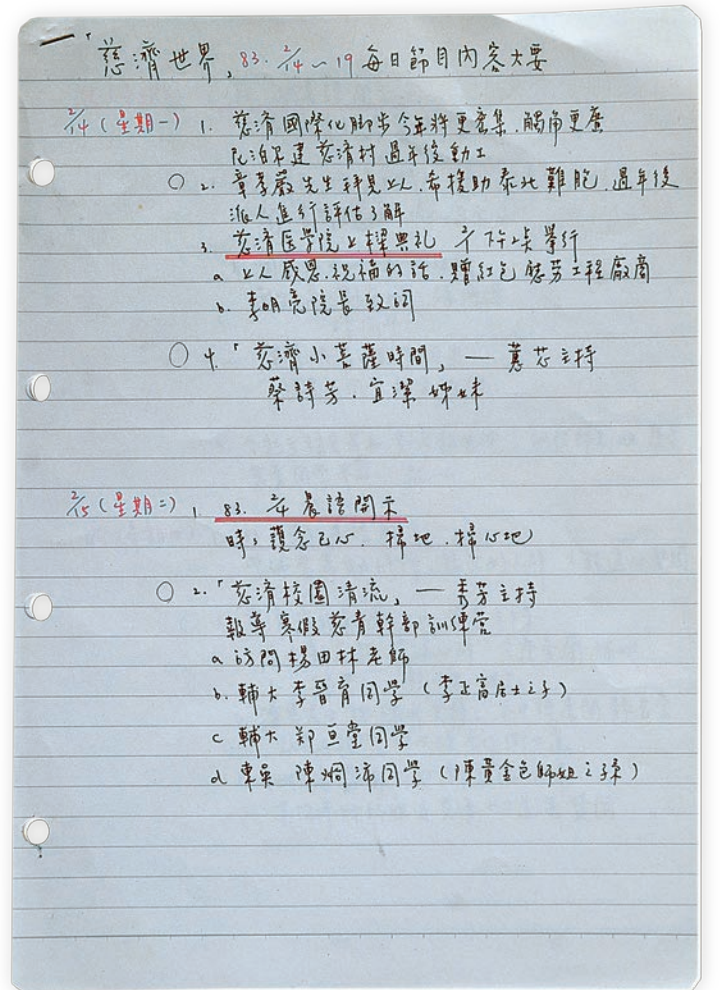 「慈濟世界」83. 2/14~19 每日節目內容大要
2/14 (星期一) 1. 慈濟國際化腳步今年將更密集、觸角更廣
尼泊尔建慈濟村 過年後動工
○ 2. 章孝嚴先生拜見上人、希援助泰北難胞、過年後
派人進行評估了解
3. 慈濟医学院上樑典礼 下午 舉行
a 上人感恩、祝福的話、贈紅包 慰劳工程廠商
b. 李明亮院長致詞
○ 4. 「慈濟小菩薩時間」— 蕙芯主持
蔡詩芳、宜潔姊妹
2/15 (星期二) 1. 83. 2/4 晨語開示
時時護念己心、掃地、掃心地
○ 2. 「慈濟校園清流」— 秀芳主持
報導寒假慈青幹部訓練营
a 訪問楊田林老師
b. 輔大 李晉育同學 (李正富居士之子)
c 輔大 郑亘堂同學
d 東吳 陳炯沛同學 (陳黃金色師姐之孫)